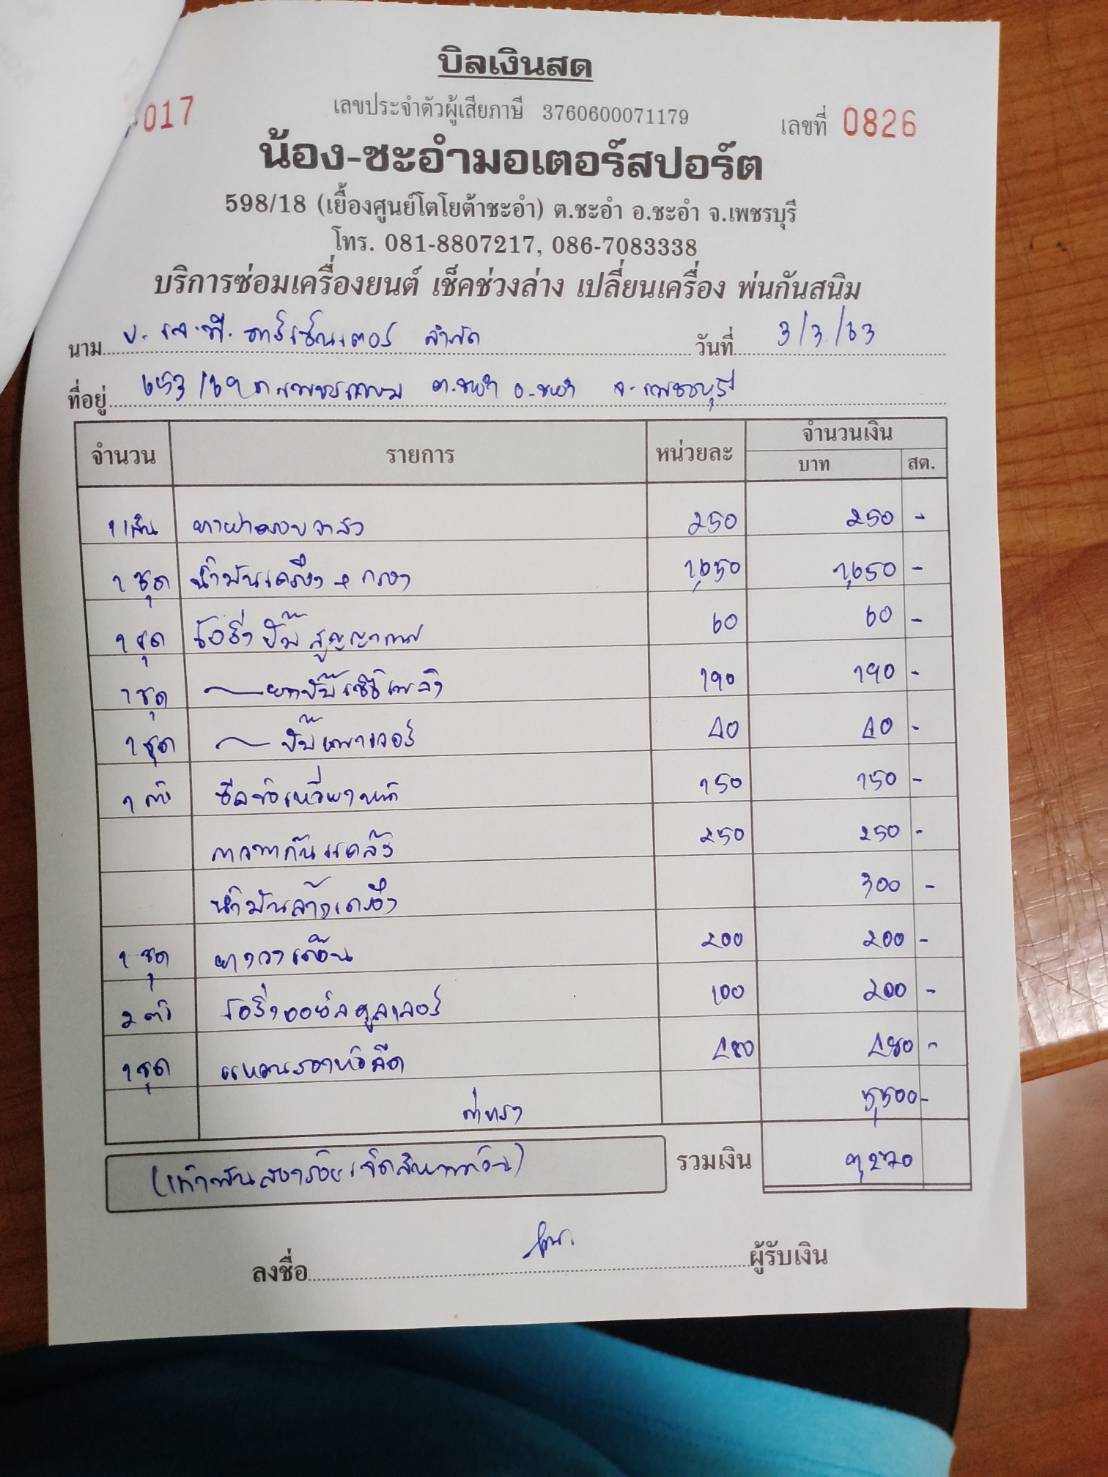 บิลเงินสด
เลขประจำตัวผู้เสียภาษี 3760600071179
017 เลขที่ 0826
น้อง-ชะอำมอเตอร์สปอร์ต
598/18 (เยื้องศูนย์โตโยต้าชะอำ) ต.ชะอำ อ.ชะอำ จ.เพชรบุรี
โทร. 081-8807217, 086-7083338
บริการซ่อมเครื่องยนต์ เช็คช่วงล่าง เปลี่ยนเครื่อง พ่นกันสนิม
นาม บ. เจ.ที. จำกัด วันที่ 3/3/63
ที่อยู่ 653/69 ถ.เพชรเกษม ต.ชะอำ อ.ชะอำ จ.เพชรบุรี
จำนวน รายการ หน่วยละ จำนวนเงิน
บาท สต.
1 เส้น 250 250 -
1 ชุด น้ำมันเครื่อง + กรอง 1,650 1,650 -
1 ชุด โอริ่งปั๊มสูญญากาศ 60 60 -
1 ชุด 190 190 -
1 ชุด ~ ปั๊มเพาเวอร์ 40 40 -
1 ตัว ซีลข้อเหวี่ยงหน้า 150 150 -
กาวทากันแคล้ง 250 250 -
น้ำมันล้างเครื่อง 300 -
1 ชุด ยางวาล์ว 200 200 -
2 ตัว โอริ่งออยล์คูลเลอร์ 100 200 -
1 ชุด แหวนรองหัวฉีด 480 480 -
ค่าแรง 5,500 -
(เก้าพันสองร้อยเจ็ดสิบบาทถ้วน) รวมเงิน 9,270
ลงชื่อ ผู้รับเงิน